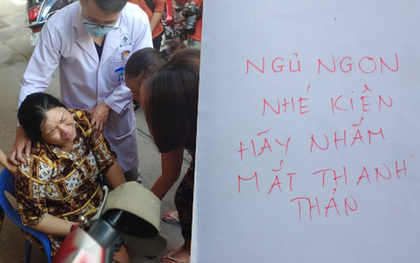 NGủ NGON
NHÉ KIÊN
HÃY NHẮM
MẮT THANH
THẢN